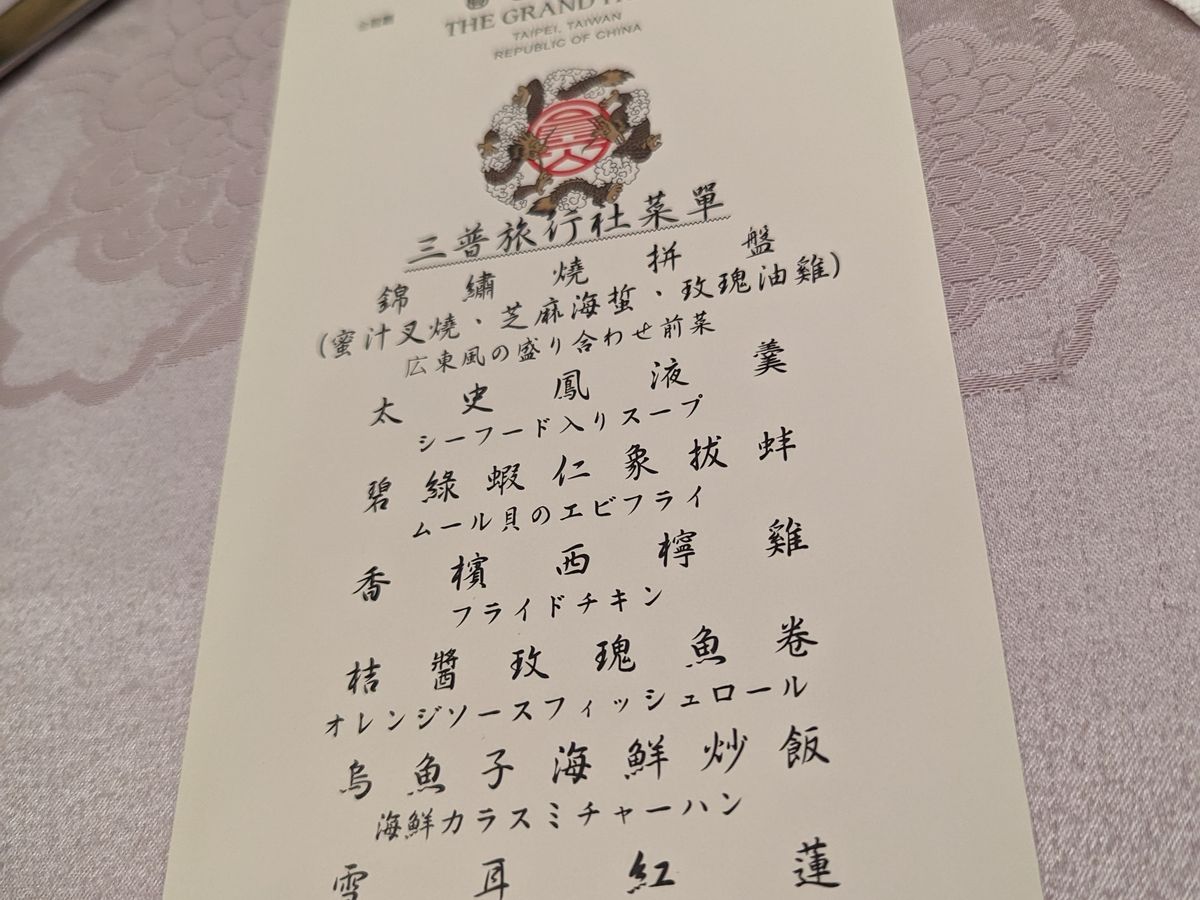 THE GRAND
TAIPEI, TAIWAN
REPUBLIC OF CHINA
三普旅行社菜單
錦繡燒拼盤
(蜜汁叉燒、芝麻海蜇、玫瑰油雞)
広東風の盛り合わせ前菜
太史鳳液羹
シーフード入りスープ
碧綠蝦仁象拔蚌
ムール貝のエビフライ
香檳西檸雞
フライドチキン
桔醬玫瑰魚卷
オレンジソースフィッシュロール
烏魚子海鮮炒飯
海鮮カラスミチャーハン
雪耳紅蓮